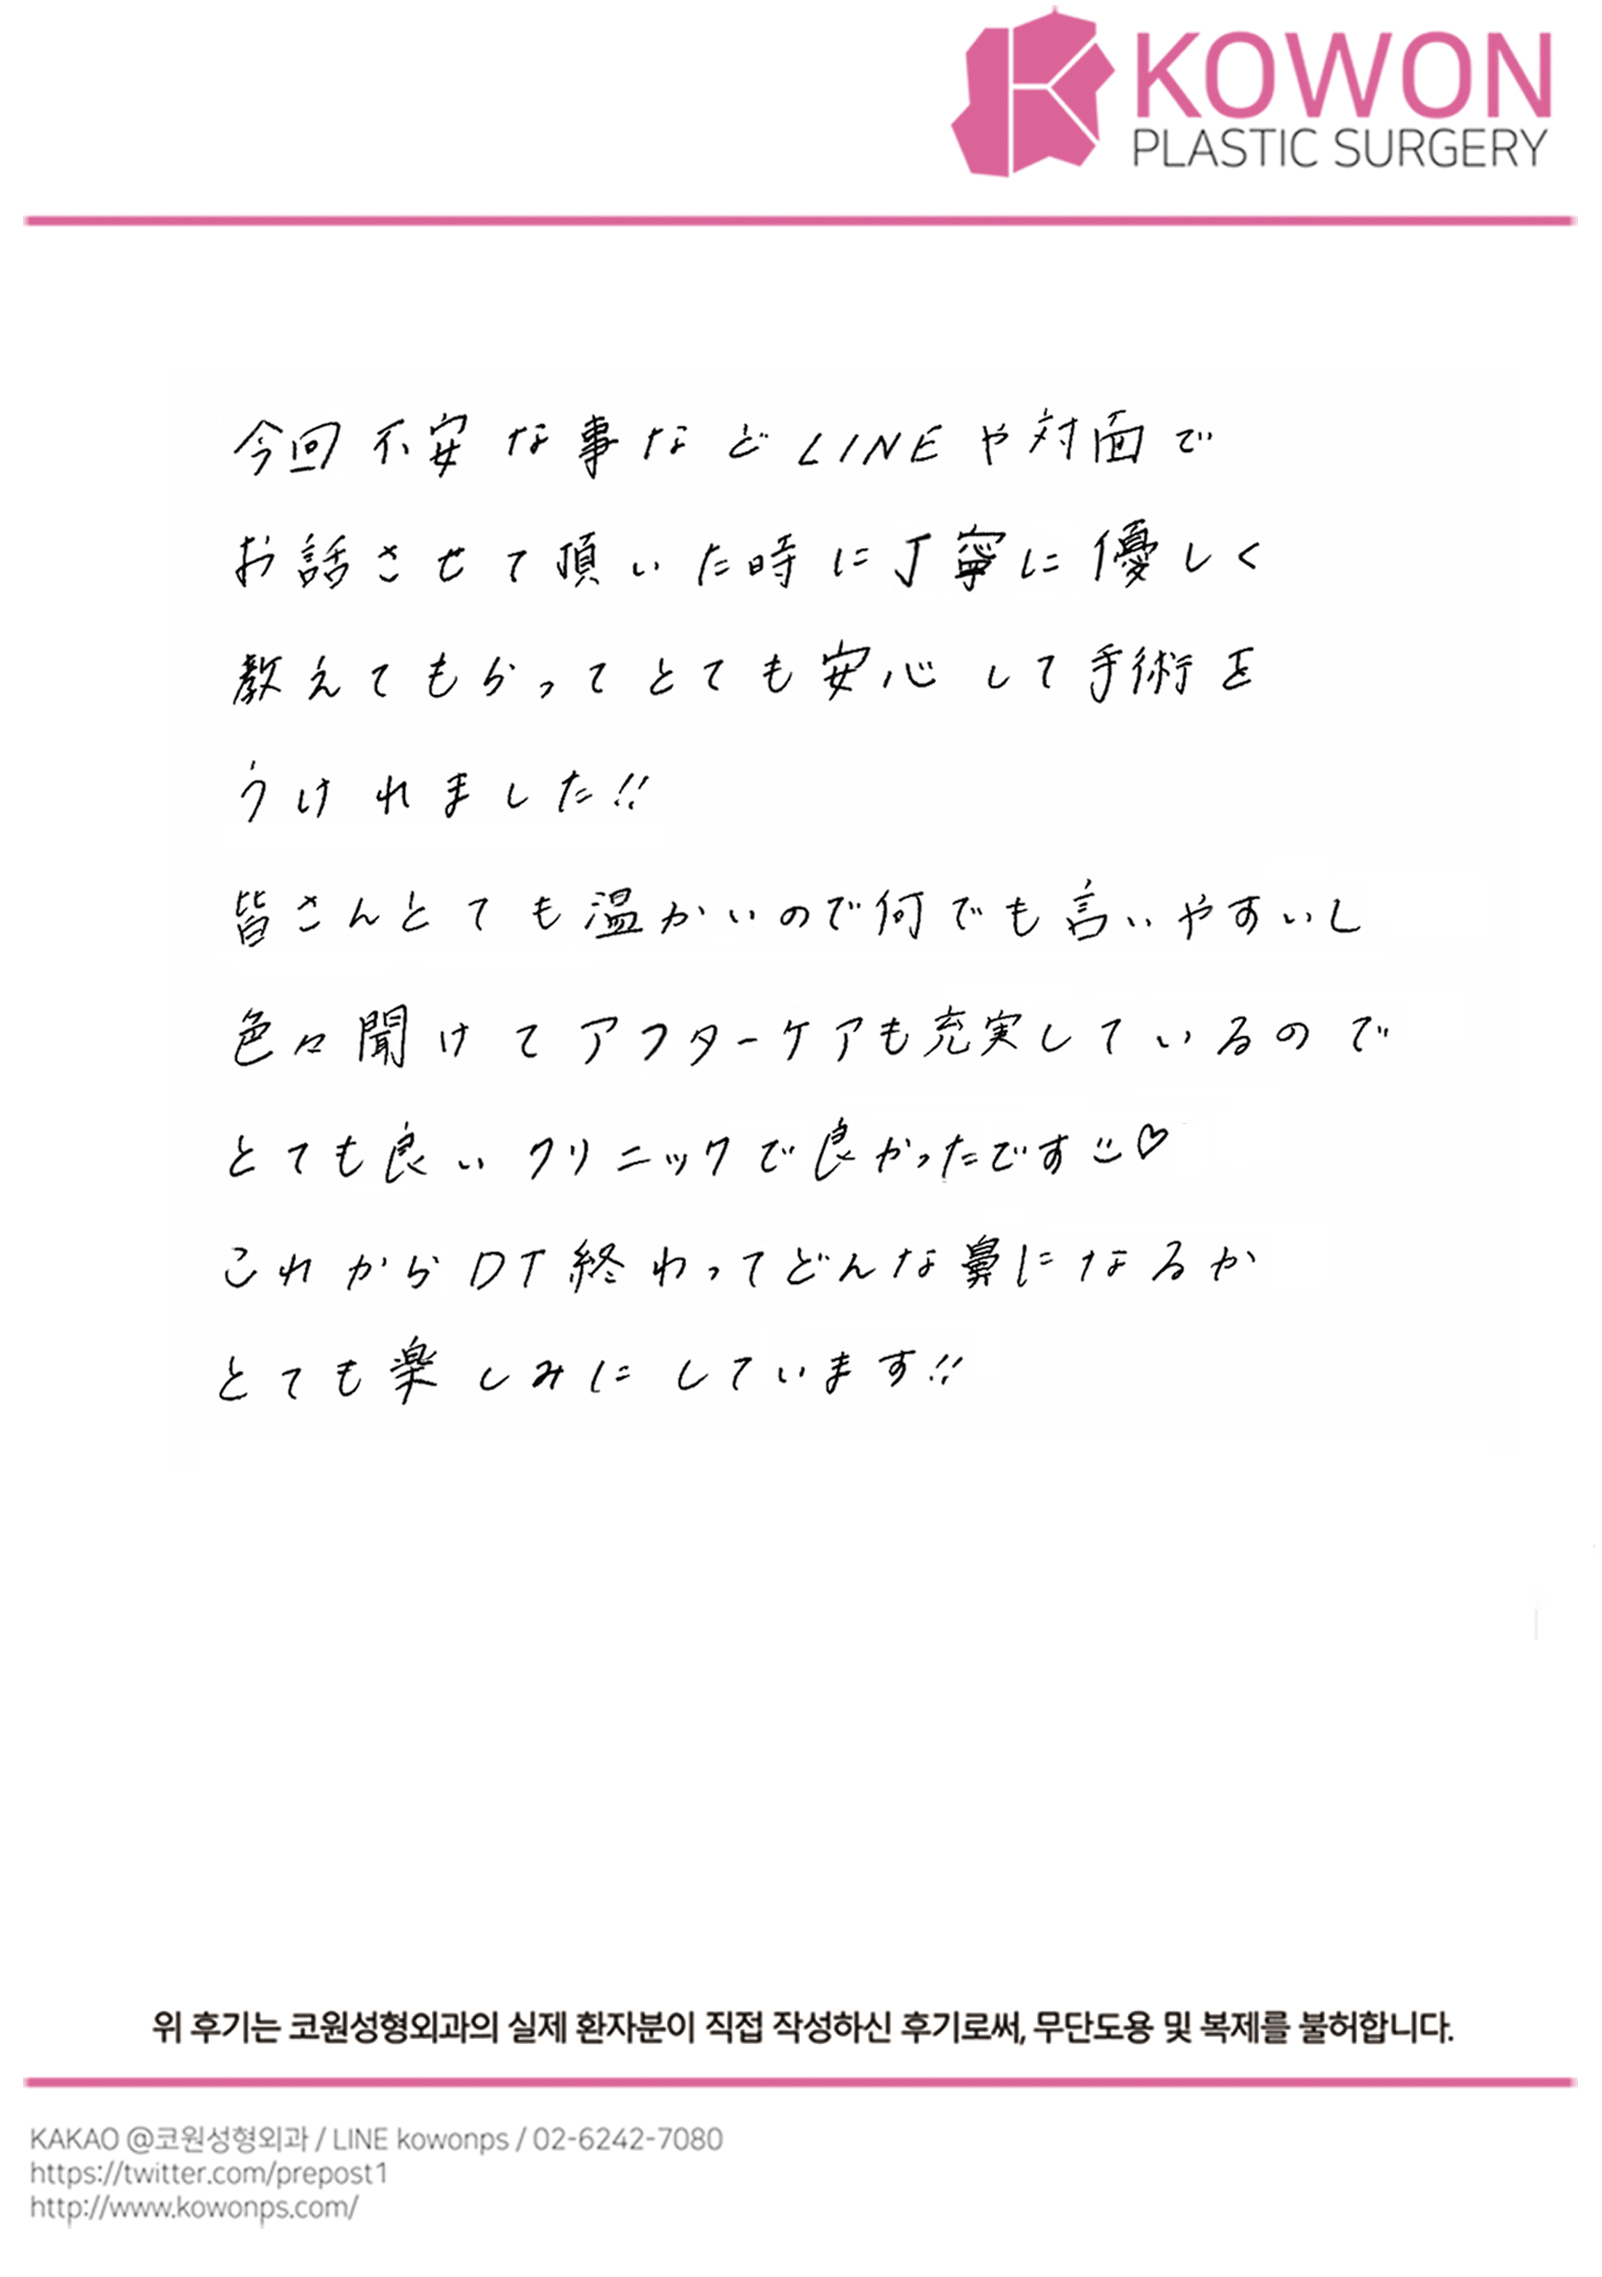 KOWON
PLASTIC SURGERY
今回不安な事などLINEや対面で
お話させて頂いた時に丁寧に優しく
教えてもらってとても安心して手術を
うけれました!!
皆さんとても温かいので何でも言いやすいし
色々聞けてアフターケアも充実しているので
とても良いクリニックで良かったです
これからDT終わってどんな鼻になるか
とても楽しみにしています!!
위 후기는 코원성형외과의 실제 환자분이 직접 작성하신 후기로써, 무단도용 및 복제를 불허합니다.
KAKAO @코원성형외과 / LINE kowonps / 02-6242-7080
https://twitter.com/prepost1
http://www.kowonps.com/